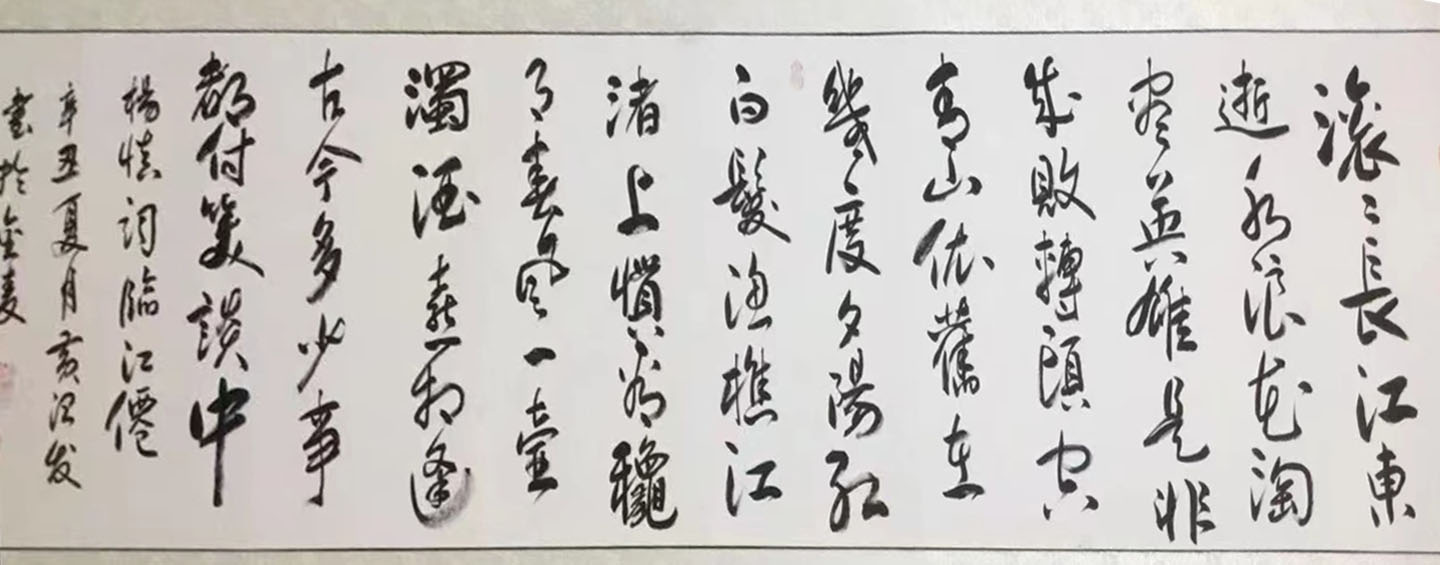 滚〻長江東
逝水浪花淘
尽英雄是非
成敗轉頭空
青山依舊在
幾度夕陽红
白髮渔樵江
渚上慣看龝
月春風一壺
濁酒喜相逢
古今多少事
都付笑談中
楊慎詞臨江僊
辛丑夏月黄发
書於金陵